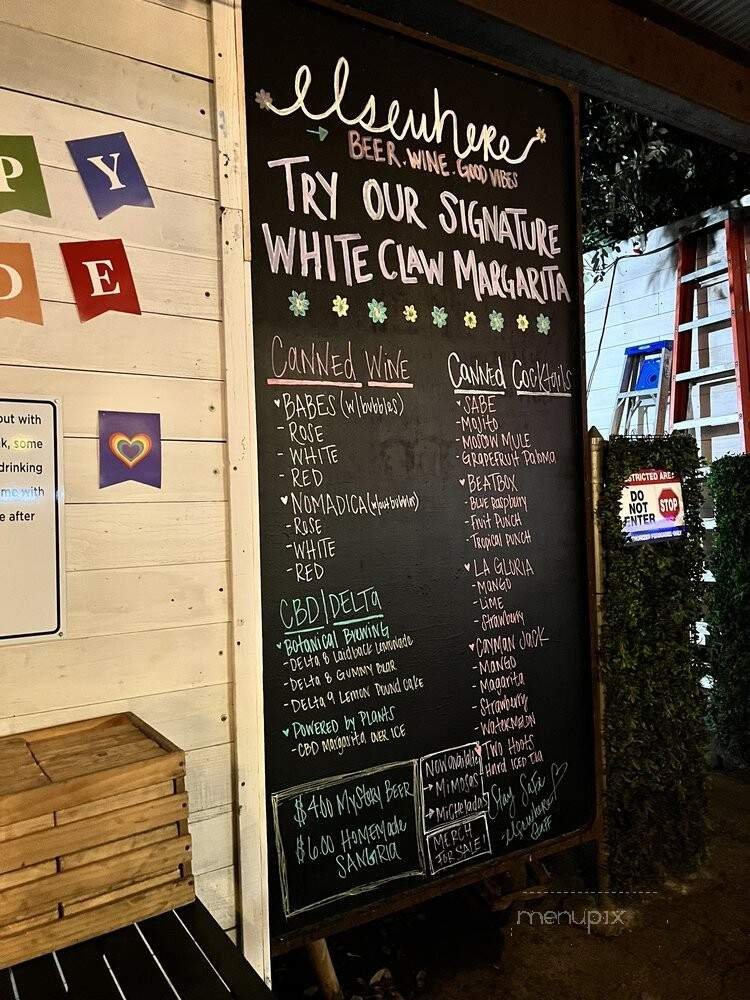 P Y
D E
out with
k, some
drinking
me with
e after
elsewhere
BEER. WINE. GOOD VIBES
TRY OUR SIGNATURE
WHITE CLAW MARGARITA
CANNED WINE
BABES (w/bubbles)
- ROSE
- WHITE
- RED
NOMADICA (w/out bubbles)
- ROSE
- WHITE
- RED
CBD/DELTA
BOTANICAL BREWING
- DELTA 8 LAIDBACK LEMONADE
- DELTA 8 GUMMY BEAR
- DELTA 9 LEMON POUND CAKE
POWERED by PLANTS
- CBD MARGARITA OVER ICE
$4.00 MYSTERY BEER
$6.00 HOMEMADE
SANGRIA
CANNED COCKTAILS
SABE
- MOJITO
- MOSCOW MULE
- GRAPEFRUIT PALOMA
BEATBOX
- BLUE RASPBURY
- FRUIT PUNCH
- TROPICAL PUNCH
LA GLORIA
- MANGO
- LIME
- STRAWBERRY
CAYMAN JACK
- MANGO
- MAGARITA
- STRAWBERRY
- WATERMELON
TWO HOOTS
HARD ICED TEA
NOW AVAILABLE
MIMOSAS
MICHELADAS
MERCH
FOR SALE!
STAY SAFE
- ELSEWHERE
STAFF
STRICTED AREA
DO
NOT
ENTER
STOP
menupix